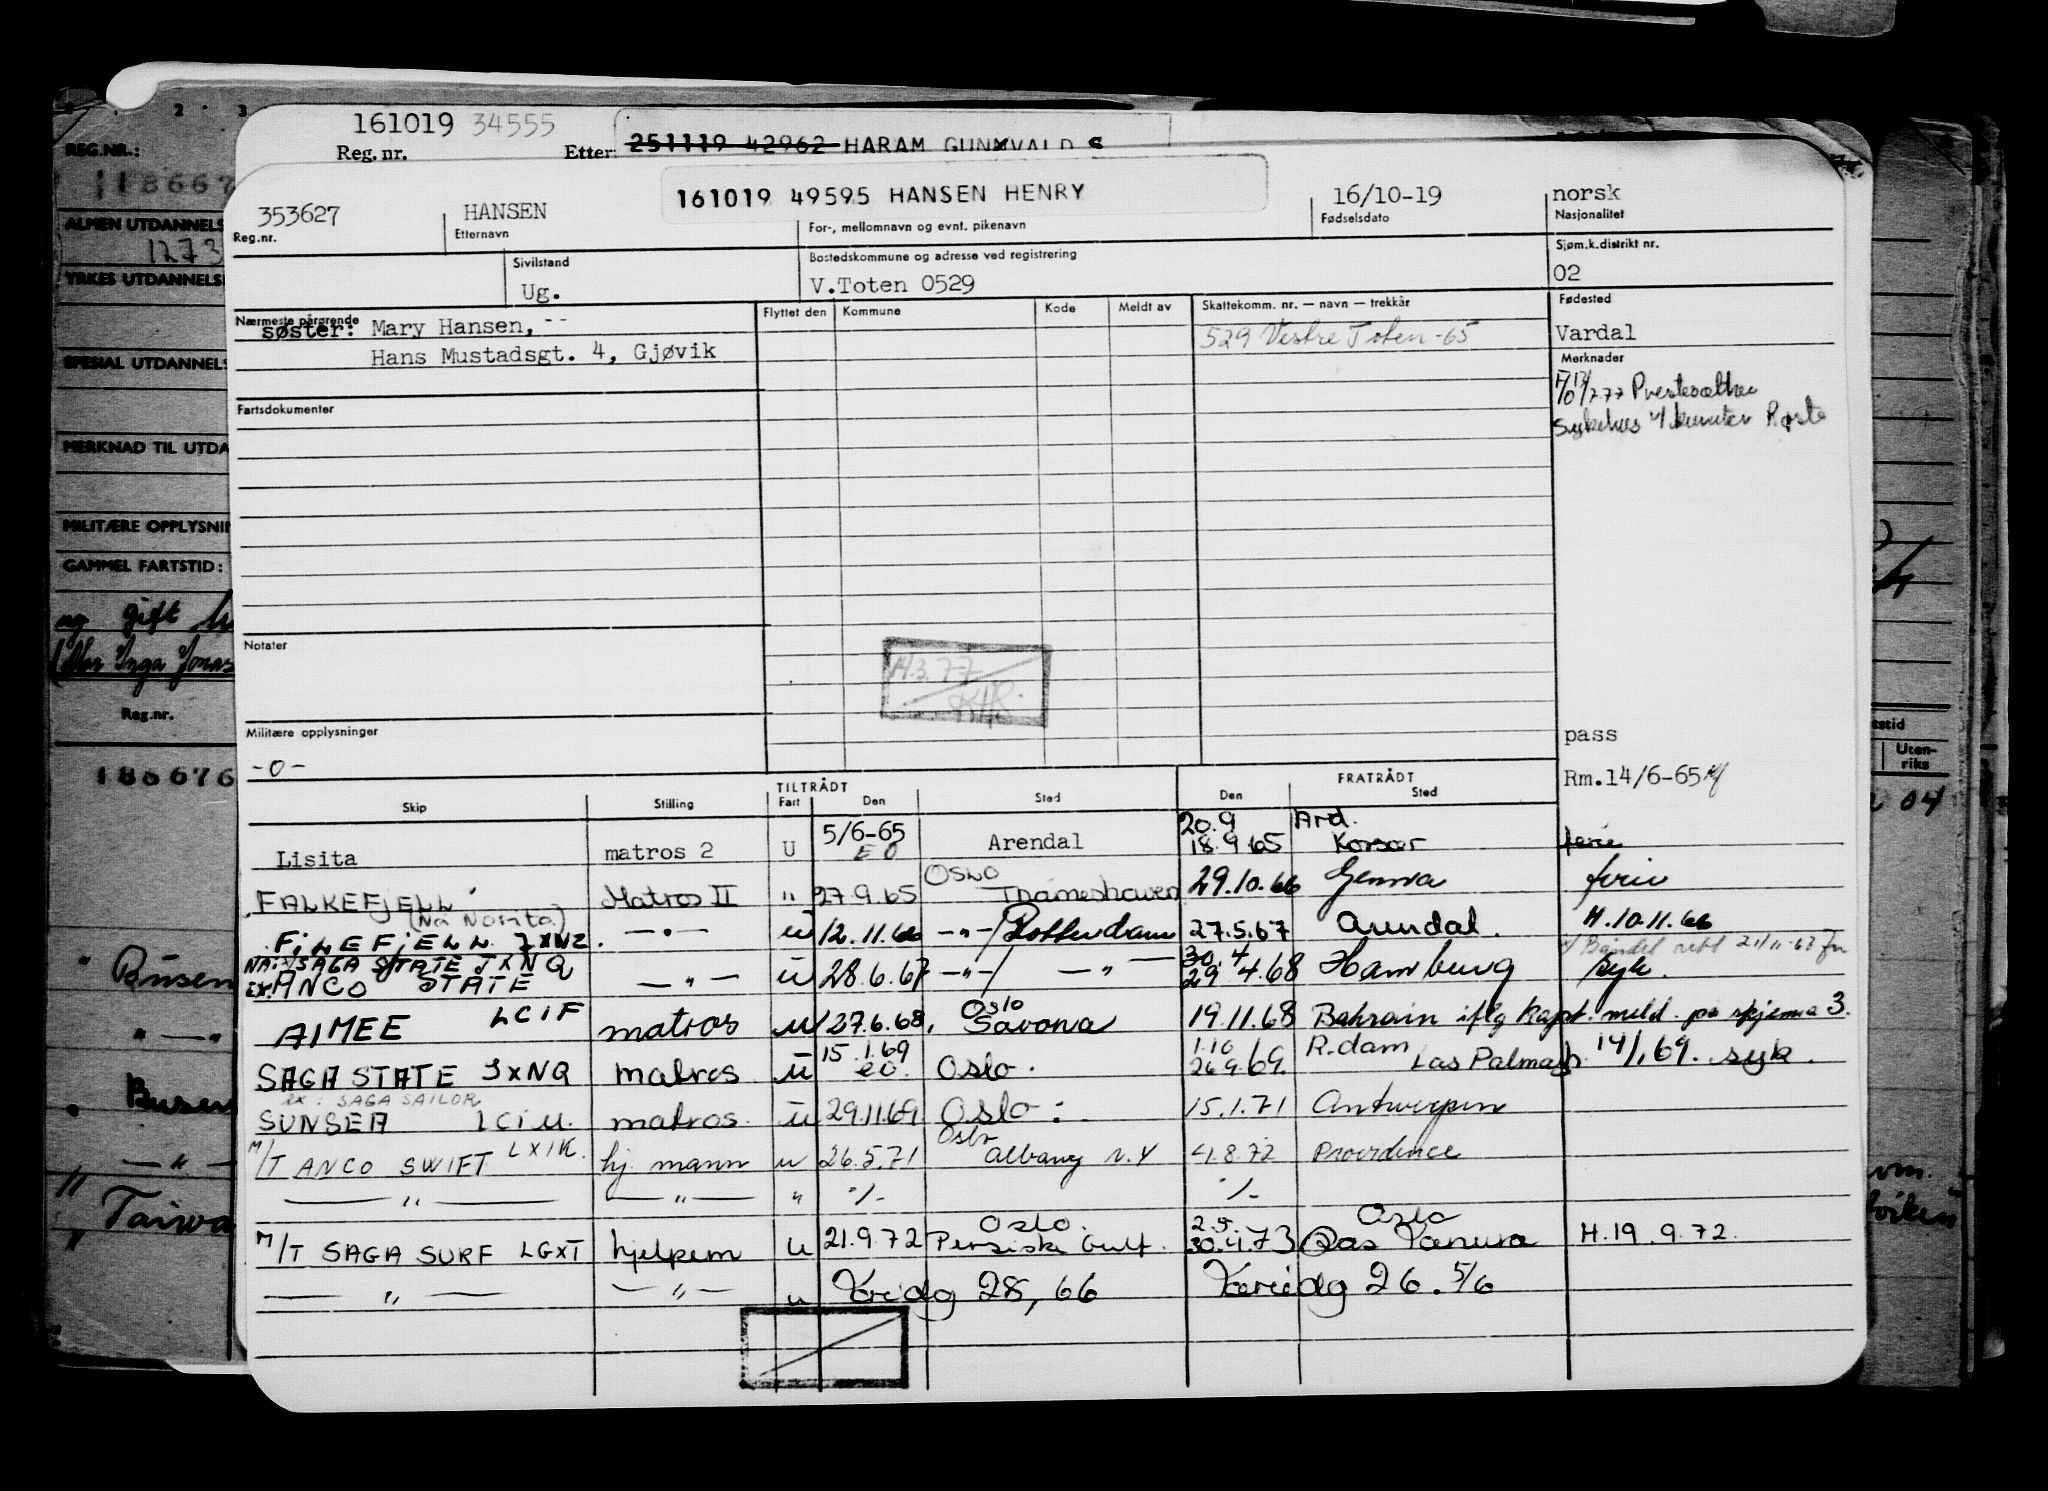 161019 34555
Reg. nr.
Etter
251119 42962 HARAM GUNXVALD S
161019 49595 HANSEN HENRY
353627
HANSEN
16/10-19
norsk
Reg.nr.
Etternavn
For-, mellomnavn og evnt. pikenavn
Fødselsdato
Nasjonalitet
Sivilstand
Bostedskommune og adresse ved registrering
Sjøm.k.distrikt nr.
Ug.
V.Toten 0529
02
Nærmeste pårørende
Flyttet den
Kommune
Kode
Meldt av
Skattekomm. nr. — navn — trekkår
Fødested
søster: Mary Hansen,
529 Vestre Toten -65
Vardal
Hans Mustadsgt. 4, Gjøvik
Merknader
Fartsdokumenter
Notater
Militære opplysninger
-0-
pass
Rm.14/6-65
TILTRÅDT
FRATRÅDT
Skip
Stilling
Fart
Den
Sted
Den
Sted
Lisita matros 2 U 5/6-65 EO Arendal 20.9 18.9 65 Ard. Korsør ferie
FALKEFJELL Matros II " 27.9.65 OSLO Thameshaven 29.10.66 Genova ferie
(Nå Norita)
FILEFJELL JXNZ. — " — u 12.11.66 —"—/Rotterdam 27.5.67 Arendal. H.10.11.66
NÅ: SAGA STATE JXNQ
EX. ANCO STATE — " — u 28.6.67 —"—/ —"— 30.4 29.4.68 Hamburg syk.
AIMEE LCIF matros u 27.6.68. Oslo Savona 19.11.68 Bahrain iflg kapt. meld. på skjema 3.
SAGA STATE JXNQ matros u 15.1.69 EO. Oslo. 1.10 26.9.69. R.dam Las Palmas 14/1.69. syk.
ex: SAGA SAILOR
SUNSEA LCIU. matros. u 29.11.69 Oslo: 15.1.71 Antwerpen
M/T ANCO SWIFT LXIK. hj. mann u 26.5.71 Oslo Albany N.Y 4.8.72 Providence
— " — — " — " -/- -/-
M/T SAGA SURF LGXT hjelpem u 21.9.72 Oslo. Persiske Gulf. 2.5. 30.4.73 Oslo Ras Tanura H.19.9.72.
— " — — " — u Varidg 28,66 Varidg 26.5/6
REG.NR.:
ALMEN UTDANNELS
1273
YRKES UTDANNELS
SPESIAL UTDANNELS
MERKNAD TIL UTDA
MILITÆRE OPPLYSNIN
GAMMEL FARTSTID:
gift
Reg.nr.
188676
Taiwa
tstid
Uten-
riks
04